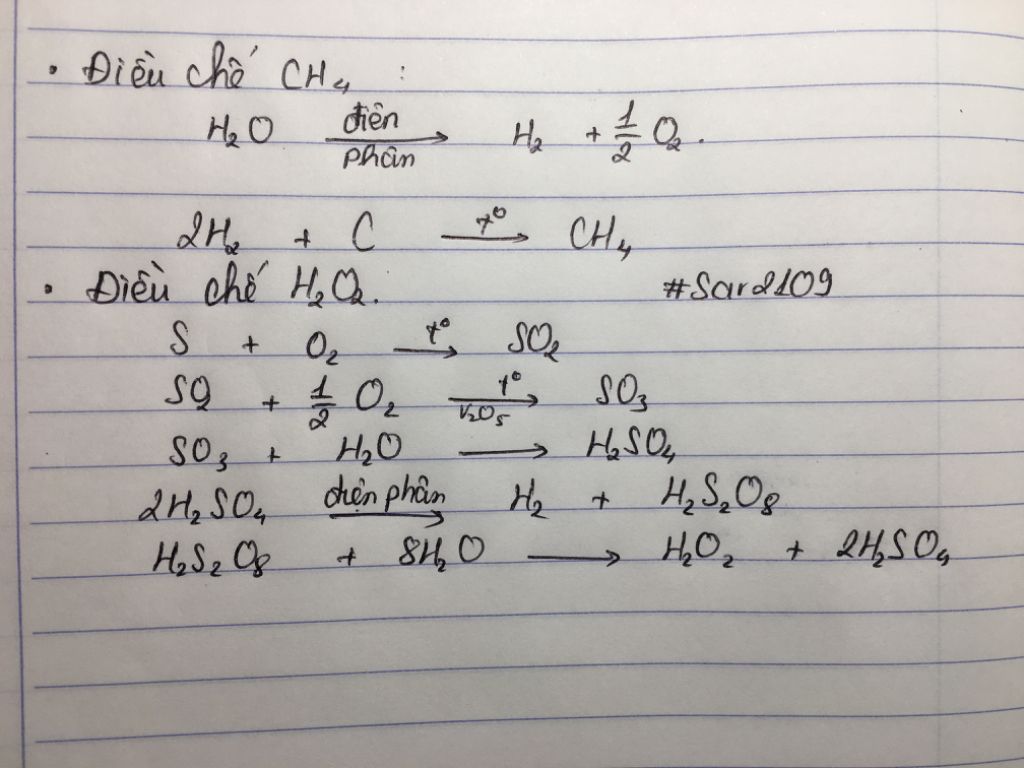 • Điều chế CH₄ :
H₂O điện phân → H₂ + 1/2 O₂.
2H₂ + C t° → CH₄
• Điều chế H₂O₂. #Sar2109
S + O₂ t° → SO₂
SO₂ + 1/2 O₂ t° V₂O₅ → SO₃
SO₃ + H₂O → H₂SO₄
2H₂SO₄ điện phân → H₂ + H₂S₂O₈
H₂S₂O₈ + 8H₂O → H₂O₂ + 2H₂SO₄